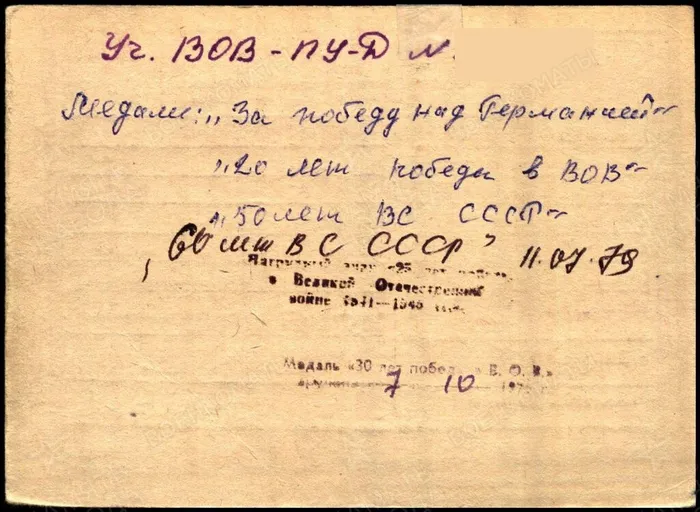 Уч. ВОВ - ПУ-Д №.
Медали: „За победу над Германией“
„20 лет победы в ВОВ“
„50 лет ВС СССР“
„60 лет ВС СССР” 11.07.79
Нагрудный знак «25 лет победы
в Великой Отечественной
войне 1941—1945 гг.»
Медаль «30 лет победы в В. О. В.»
вручена 7 10 197 г.